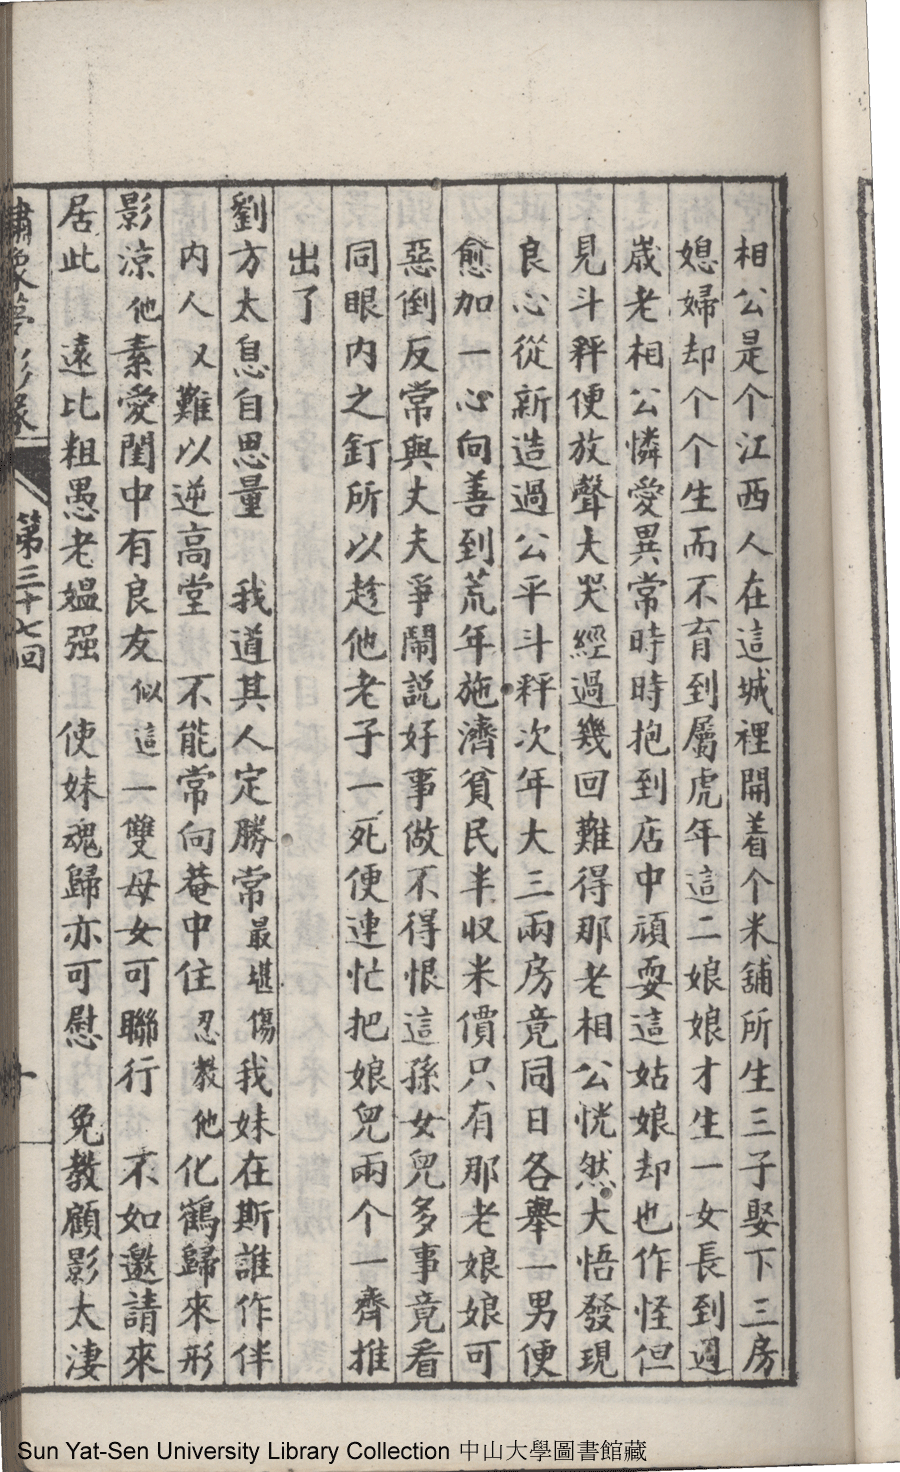 相公是个江西人在這城裡開着个米舖所生三子娶下三房
媳婦却个个生而不育到屬虎年這二娘娘才生一女長到週
歲老相公憐愛異常時時抱到店中頑耍這姑娘却也作怪但
見斗秤便放聲大哭經過幾回難得那老相公恍然大悟發現
良心從新造過公平斗秤次年大三兩房竟同日各舉一男便
愈加一心向善到荒年施濟貧民半收米價只有那老娘娘可
惡倒反常與丈夫爭鬧説好事做不得恨這孫女兒多事竟看
同眼内之釘所以趁他老子一死便連忙把娘兒兩个一齊推
出了
劉方太息自思量 我道其人定勝常最堪傷我妹在斯誰作伴
内人又難以逆高堂 不能常向菴中住忍教他化鶴歸來形
影涼他素愛閨中有良友似這一雙母女可聯行 不如邀請來
居此 遠比粗愚老媼强 使妹魂歸亦可慰 免教顧影太凄
繡像夢影緣 第三十七回 十
Sun Yat-Sen University Library Collection 中山大學圖書館藏